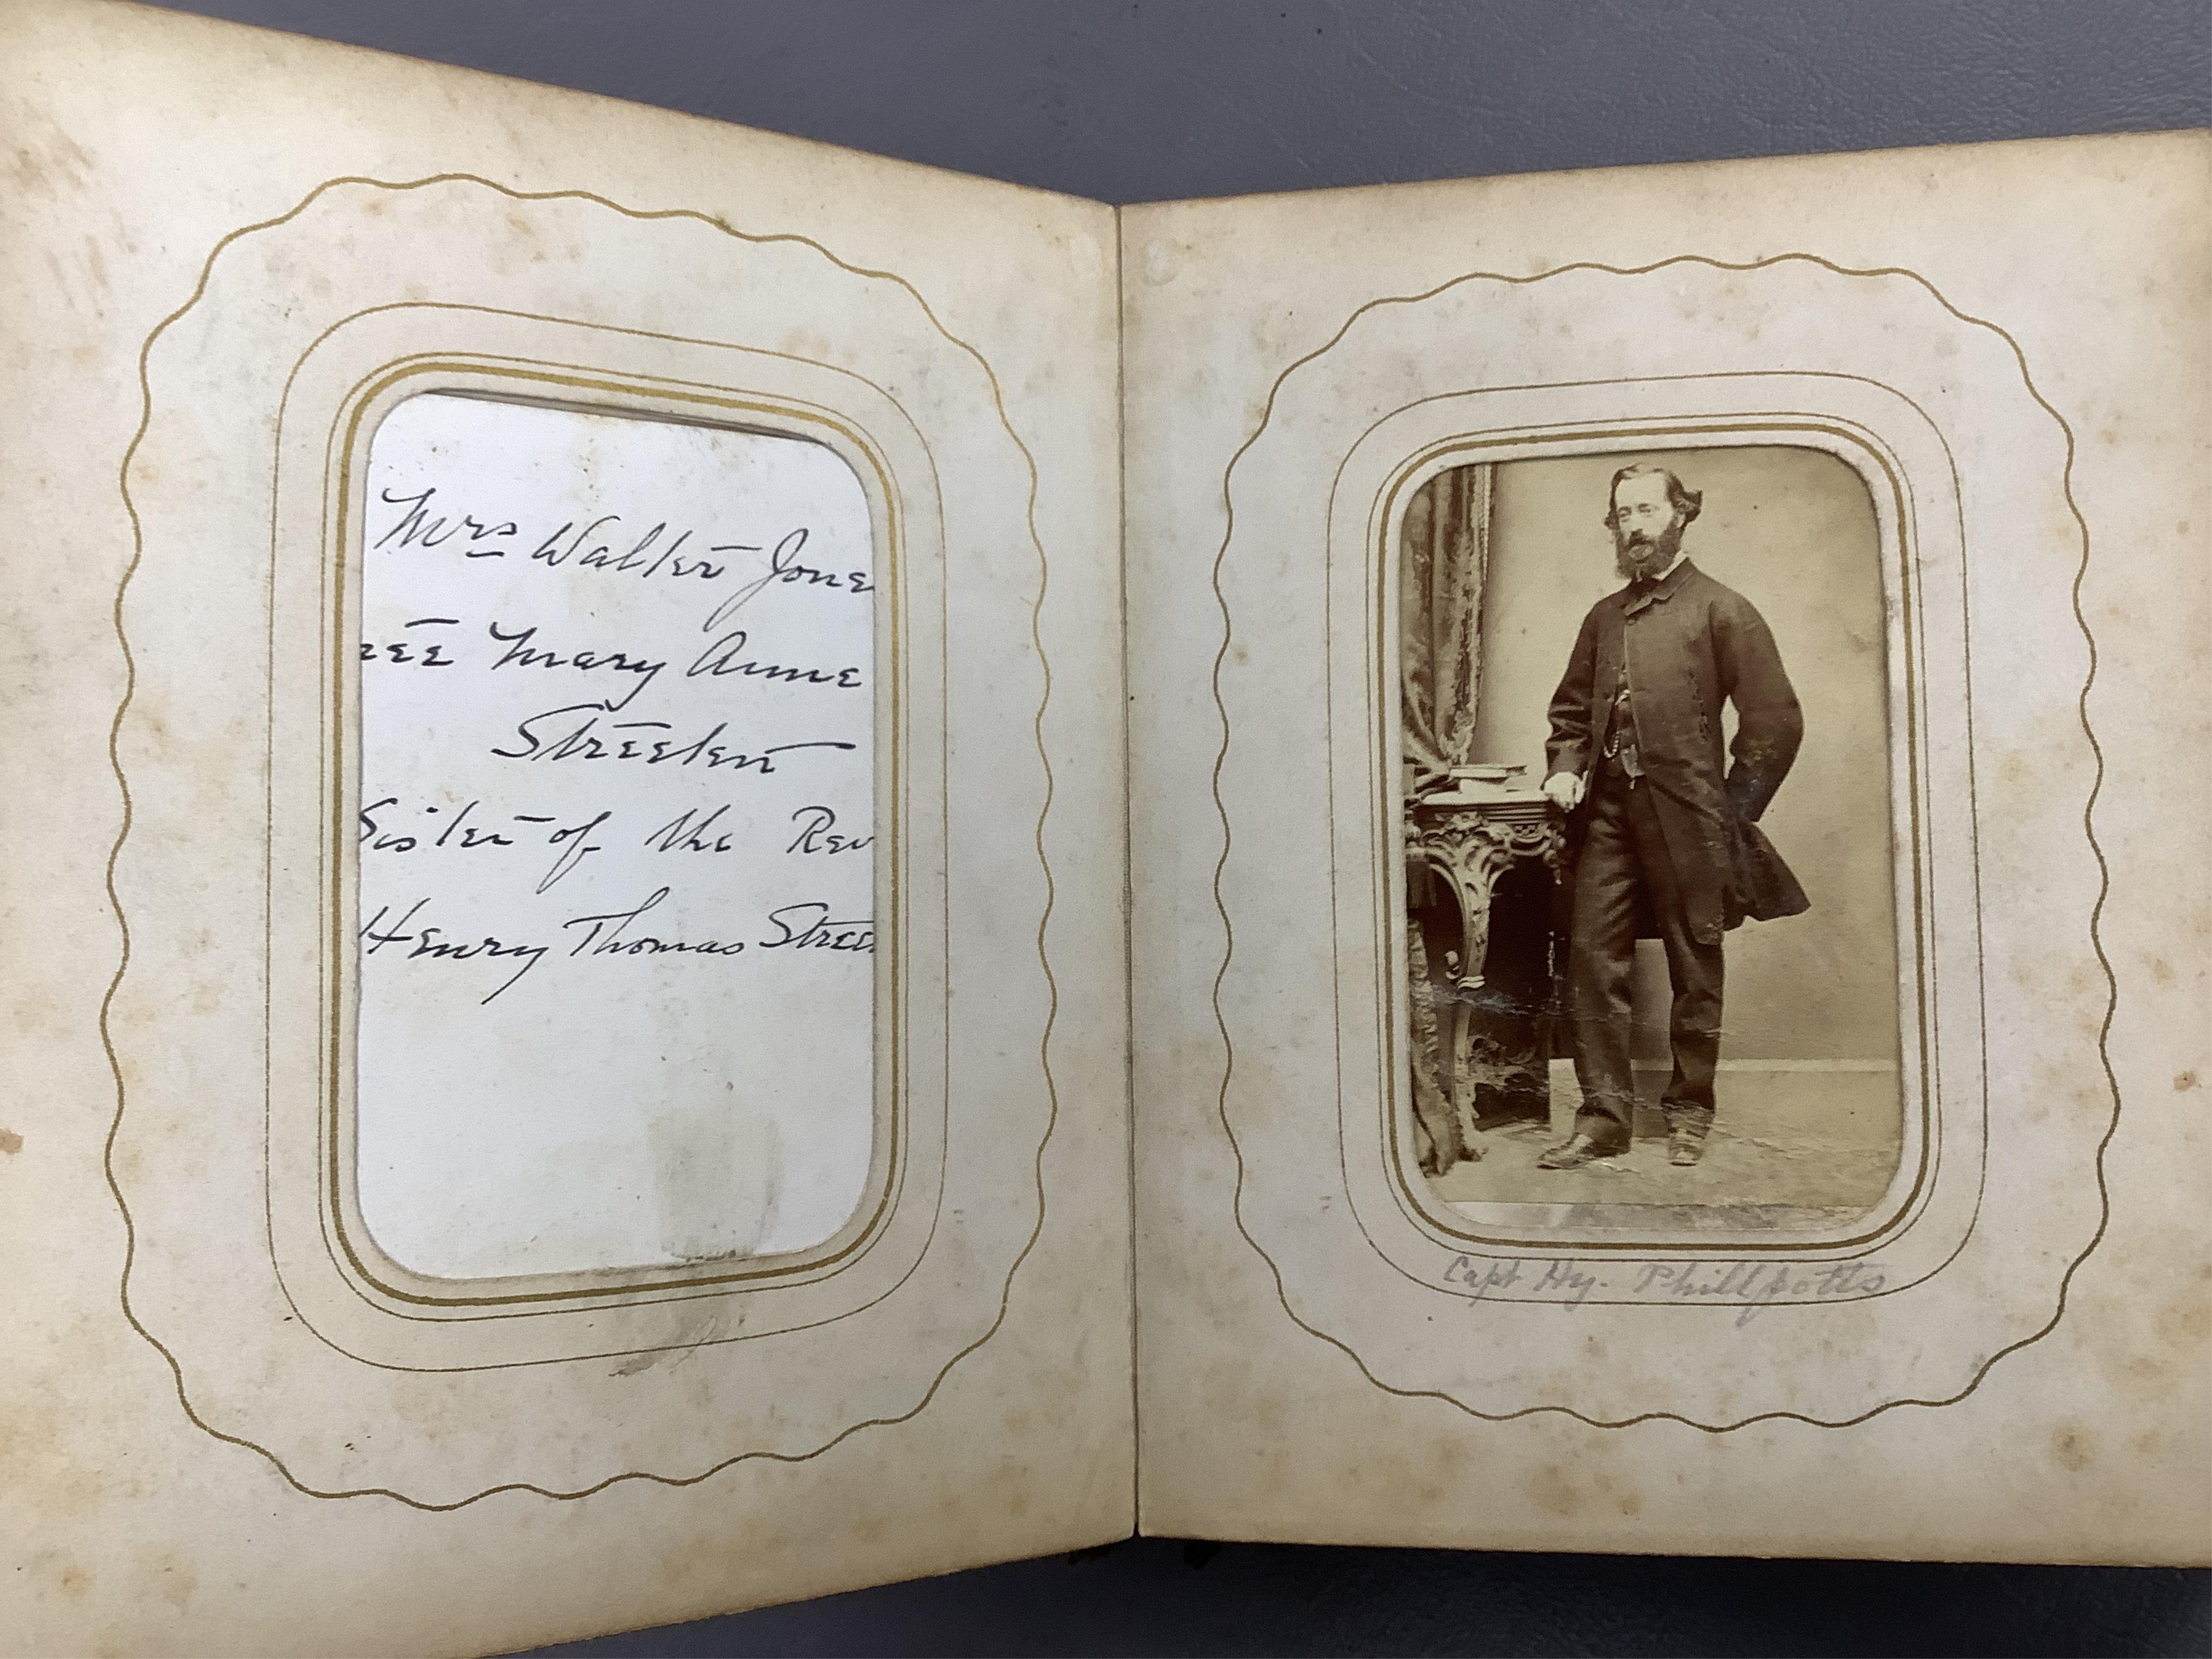 Mrs Walter Jone
née Mary Anne
Streeten
Sister of the Rev
Henry Thomas Stree
Capt Hy. Phillpotts